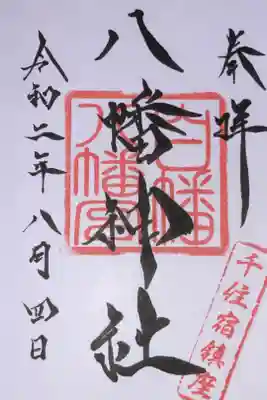 奉拝
八幡神社
白幡八幡宮
千住宿鎮座
令和二年八月四日